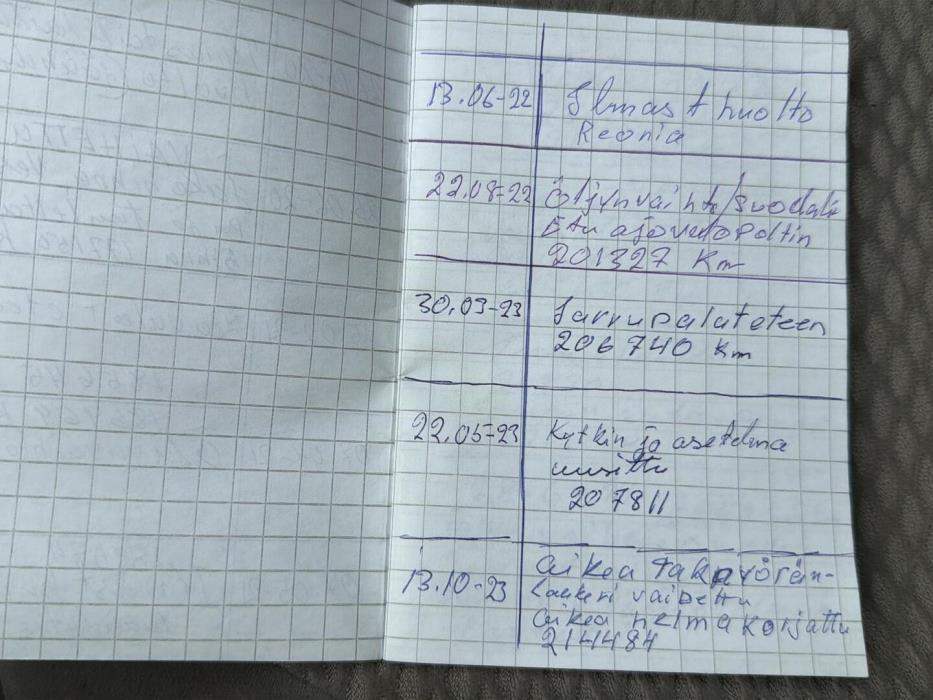 13.06-22 Ilmast huolto
Reonia
22.08-22 Öljynvaihto/suodatin
Etu ajovalopoltin
201327 Km
30.03-23 Jarrupalat eteen
206 740 Km
22.05-23 Kytkin ja asetelma
uusittu
207811
13.10-23 Oikea takapyörän-
laakeri vaihdettu
Oikea helma korjattu
214484